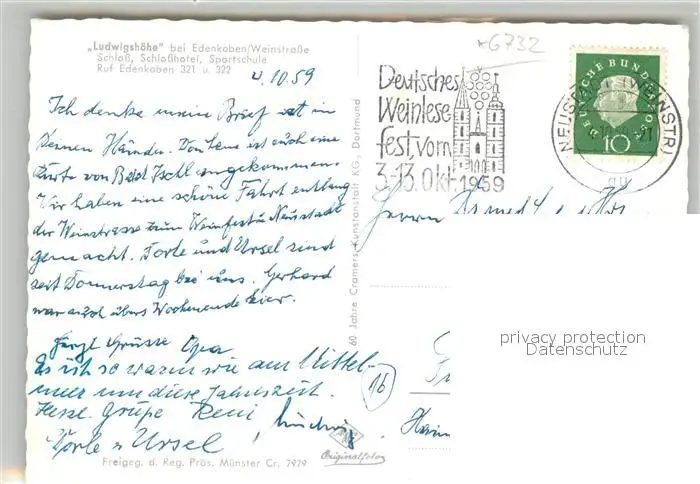 „Ludwigshöhe" bei Edenkoben/Weinstraße
Schloß, Schloßhotel, Sportschule
Ruf Edenkoben 321 u. 322
4.10.59
Ich denke mein Brief ist in
Deinen Händen. Von Lene ist auch eine
Karte von Bad Ischl angekommen.
Wir haben eine schöne Fahrt entlang
der Weinstrasse zum Weinfest in Neustadt
gemacht. Dorle und Ursel sind
seit Donnerstag bei uns. Gerhard
war auch übers Wochenende hier.
Herzl Grüsse Opa
Es ist so warm wie am Mittel-
meer um diese Jahreszeit.
Herzl. Grüsse Reni
Dorle u Ursel Ludwig
Freigeg. d. Reg. Präs. Münster Cr. 7979
60 Jahre Cramers Kunstanstalt KG., Dortmund
Originalfoto
6732
Deutsches
Weinlese
fest, vom
3.-13. Okt. 1959
NEUSTADT (WEINSTR)
DEUTSCHE BUNDESPOST
10
Herrn Dr med
16
privacy protection
Datenschutz